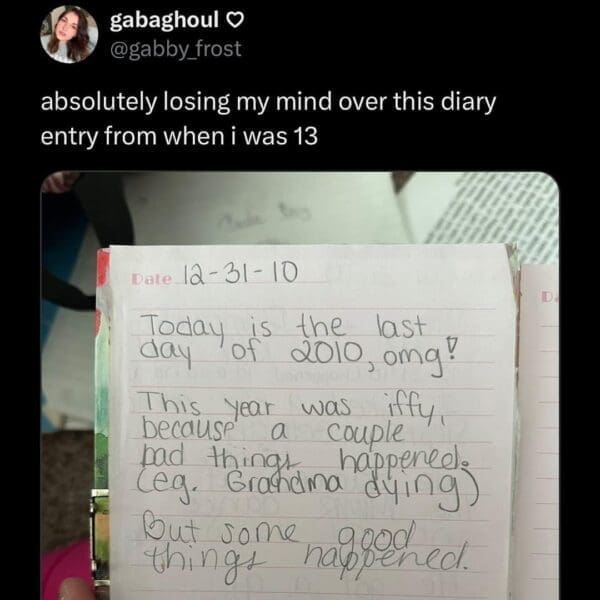 gabaghoul ♡
@gabby_frost
absolutely losing my mind over this diary
entry from when i was 13
Date 12-31-10
Today is the last
day of 2010, omg!
This year was iffy,
because a couple
bad things happened.
(eg. Grandma dying)
But some good
things happened.